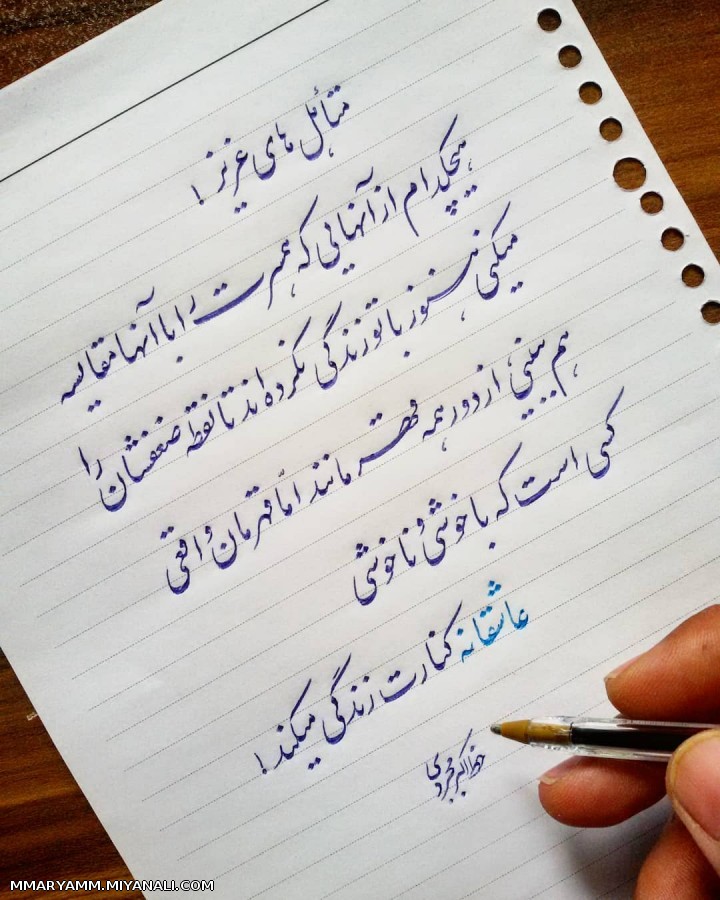 متأئل های عزیز !
هیچکدام از آنهایی که عمرت را با آنها مقایسه
میکنی هنوز با تو زندگی نکرده اند تا نقطه ضعفشان را
هم ببینی، از دور همه قهرمانند اما قهرمان واقعی
کسی است که با خوشی و ناخوشی
عاشقانه کنارت زندگی میکند !
خط اکبر
MMARYAMM.MIYANALI.COM